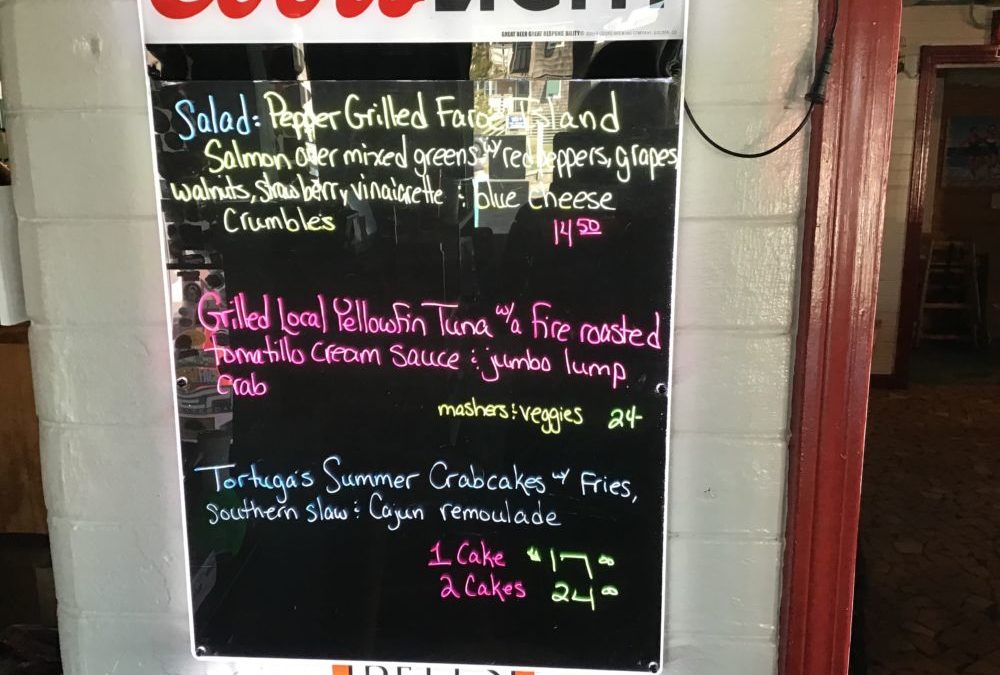 Coors LIGHT
GREAT BEER GREAT RESPONSIBILITY®
Salad: Pepper Grilled Faroe Island
Salmon over mixed greens w/ red peppers, grapes,
walnuts, strawberry, vinaigrette & blue cheese
Crumbles
14.50
Grilled Local Yellowfin Tuna w/a fire roasted
Tomatillo Cream Sauce & jumbo lump
Crab
mashers & veggies 24-
Tortuga's Summer Crabcakes w/ Fries,
southern slaw & Cajun remoulade
1 Cake $17.00
2 Cakes 24.00
BELL'S